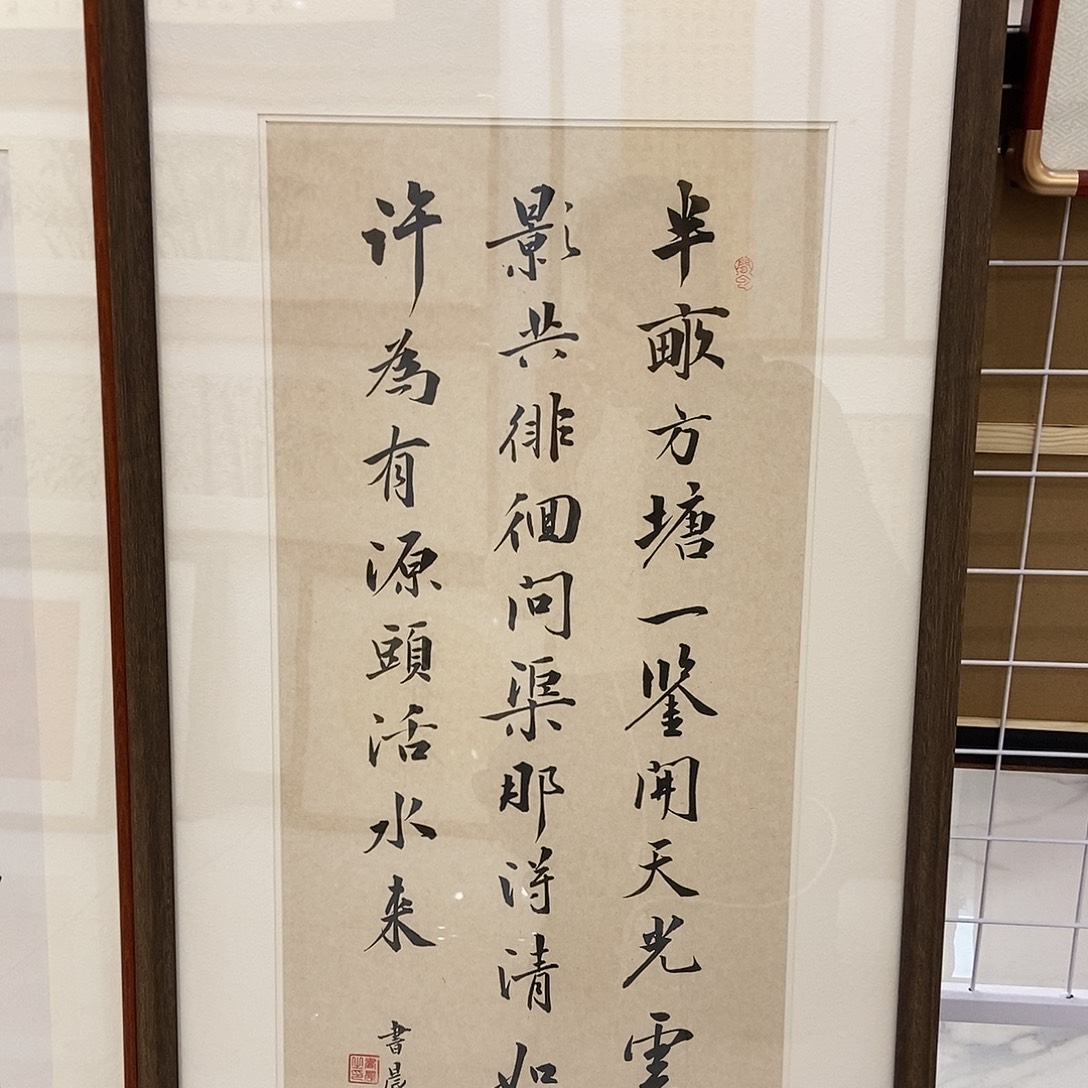 半畝方塘一鑒開天光雲
影共徘徊問渠那得清如
許為有源頭活水来
書晨